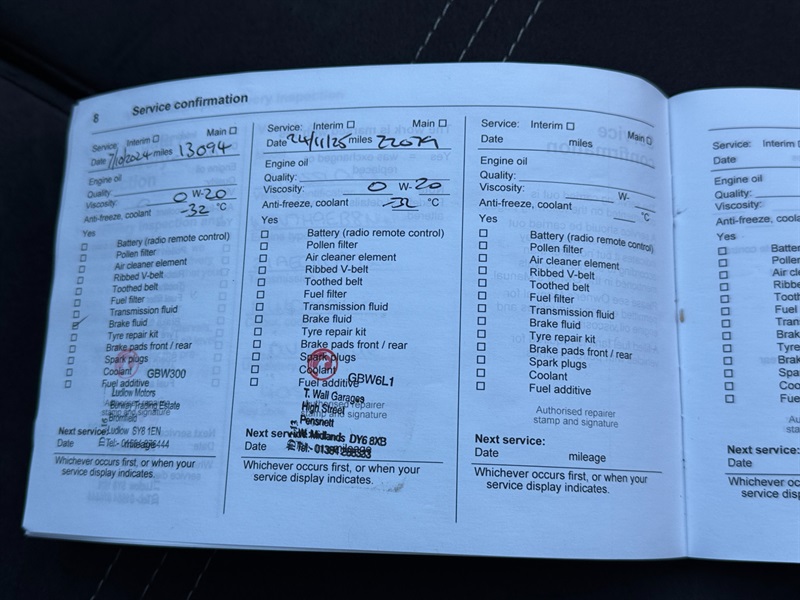 8 Service confirmation
Service: Interim Main
Date 7/10/2024 miles 13094
Engine oil
Quality:
Viscosity: 0 W-20
Anti-freeze, coolant -32 °C
Yes
Battery (radio remote control)
Pollen filter
Air cleaner element
Ribbed V-belt
Toothed belt
Fuel filter
Transmission fluid
Brake fluid
Tyre repair kit
Brake pads front / rear
Spark plugs
Coolant GBW300
Fuel additive
Ludlow Motors
Authorised repairer
Trading Estate
stamp and signature
Next service:
Ludlow SY8 1EN
Date mileage
Whichever occurs first, or when your
service display indicates.
Service: Interim Main
Date 24/11/25 miles 22079
Engine oil
Quality:
Viscosity: 0 W-20
Anti-freeze, coolant -32 °C
Yes
Battery (radio remote control)
Pollen filter
Air cleaner element
Ribbed V-belt
Toothed belt
Fuel filter
Transmission fluid
Brake fluid
Tyre repair kit
Brake pads front / rear
Spark plugs
Coolant
Fuel additive GBW6L1
T. Wall Garages
Authorised repairer
High Street
stamp and signature
Pensnett
Next service:
W. Midlands DY6 8XB
Date mileage
Tel:- 01384
Whichever occurs first, or when your
service display indicates.
Service: Interim Main
Date miles
Engine oil
Quality:
Viscosity: W-
Anti-freeze, coolant °C
Yes
Battery (radio remote control)
Pollen filter
Air cleaner element
Ribbed V-belt
Toothed belt
Fuel filter
Transmission fluid
Brake fluid
Tyre repair kit
Brake pads front / rear
Spark plugs
Coolant
Fuel additive
Authorised repairer
stamp and signature
Next service:
Date mileage
Whichever occurs first, or when your
service display indicates.
Service: Interim
Date
Engine oil
Quality:
Viscosity:
Anti-freeze, coola
Yes
Batte
Polle
Air c
Ribb
Tooth
Fuel
Tran
Brak
Tyre
Brak
Spa
Coo
Fue
Next service:
Date
Whichever oc
service disp